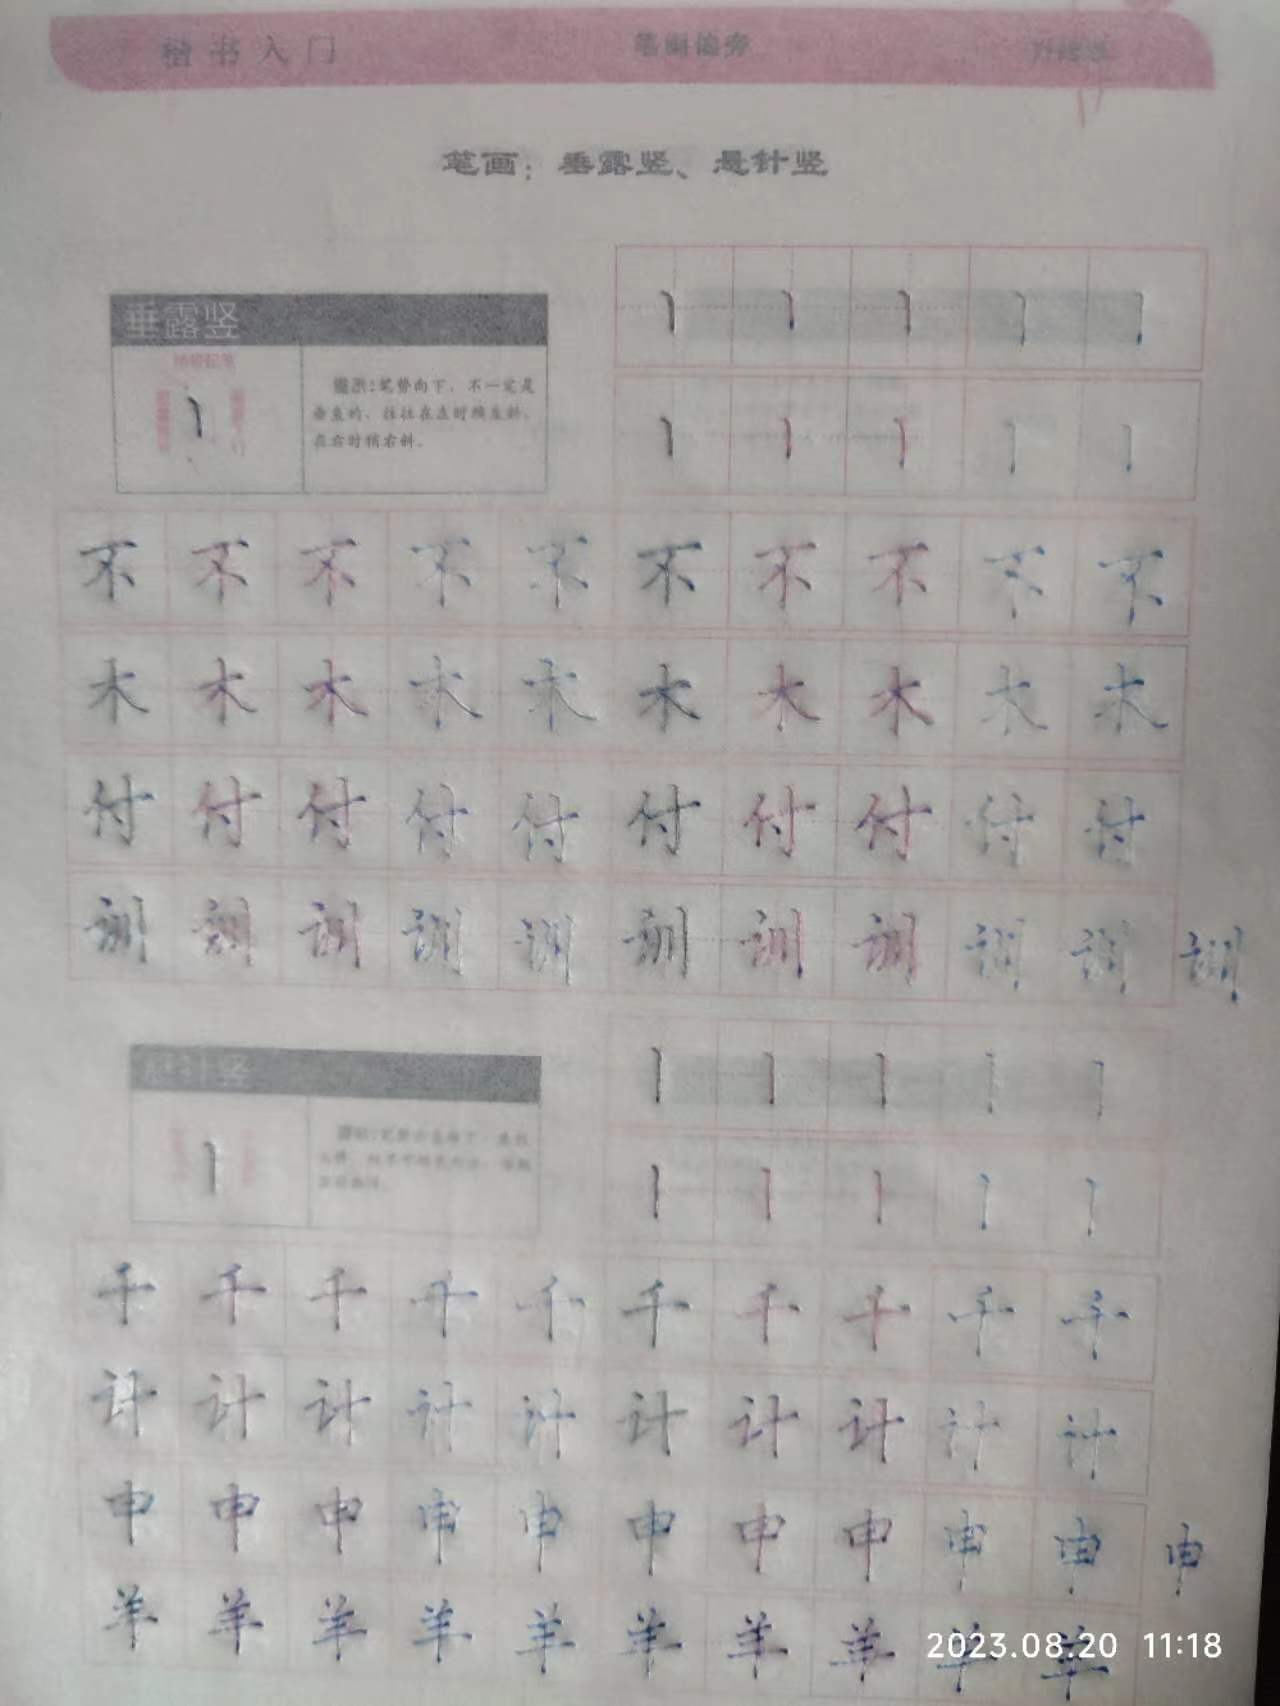 楷书入门 笔画偏旁
笔画：垂露竖、悬针竖
垂露竖
提示：笔势向下，不一定是
垂直的，往往在左时稍左斜，
在右时稍右斜。
不 不 不 不 不 不 不 不 不 不
木 木 木 木 木 木 木 木 木 木
付 付 付 付 付 付 付 付 付 付
训 训 训 训 训 训 训 训 训 训 训
悬针竖
千 千 千 千 千 千 千 千 千 千
计 计 计 计 计 计 计 计 计 计
申 申 申 申 申 申 申 申 申 申 申
羊 羊 羊 羊 羊 羊 羊 羊 羊 羊
2023.08.20 11:18